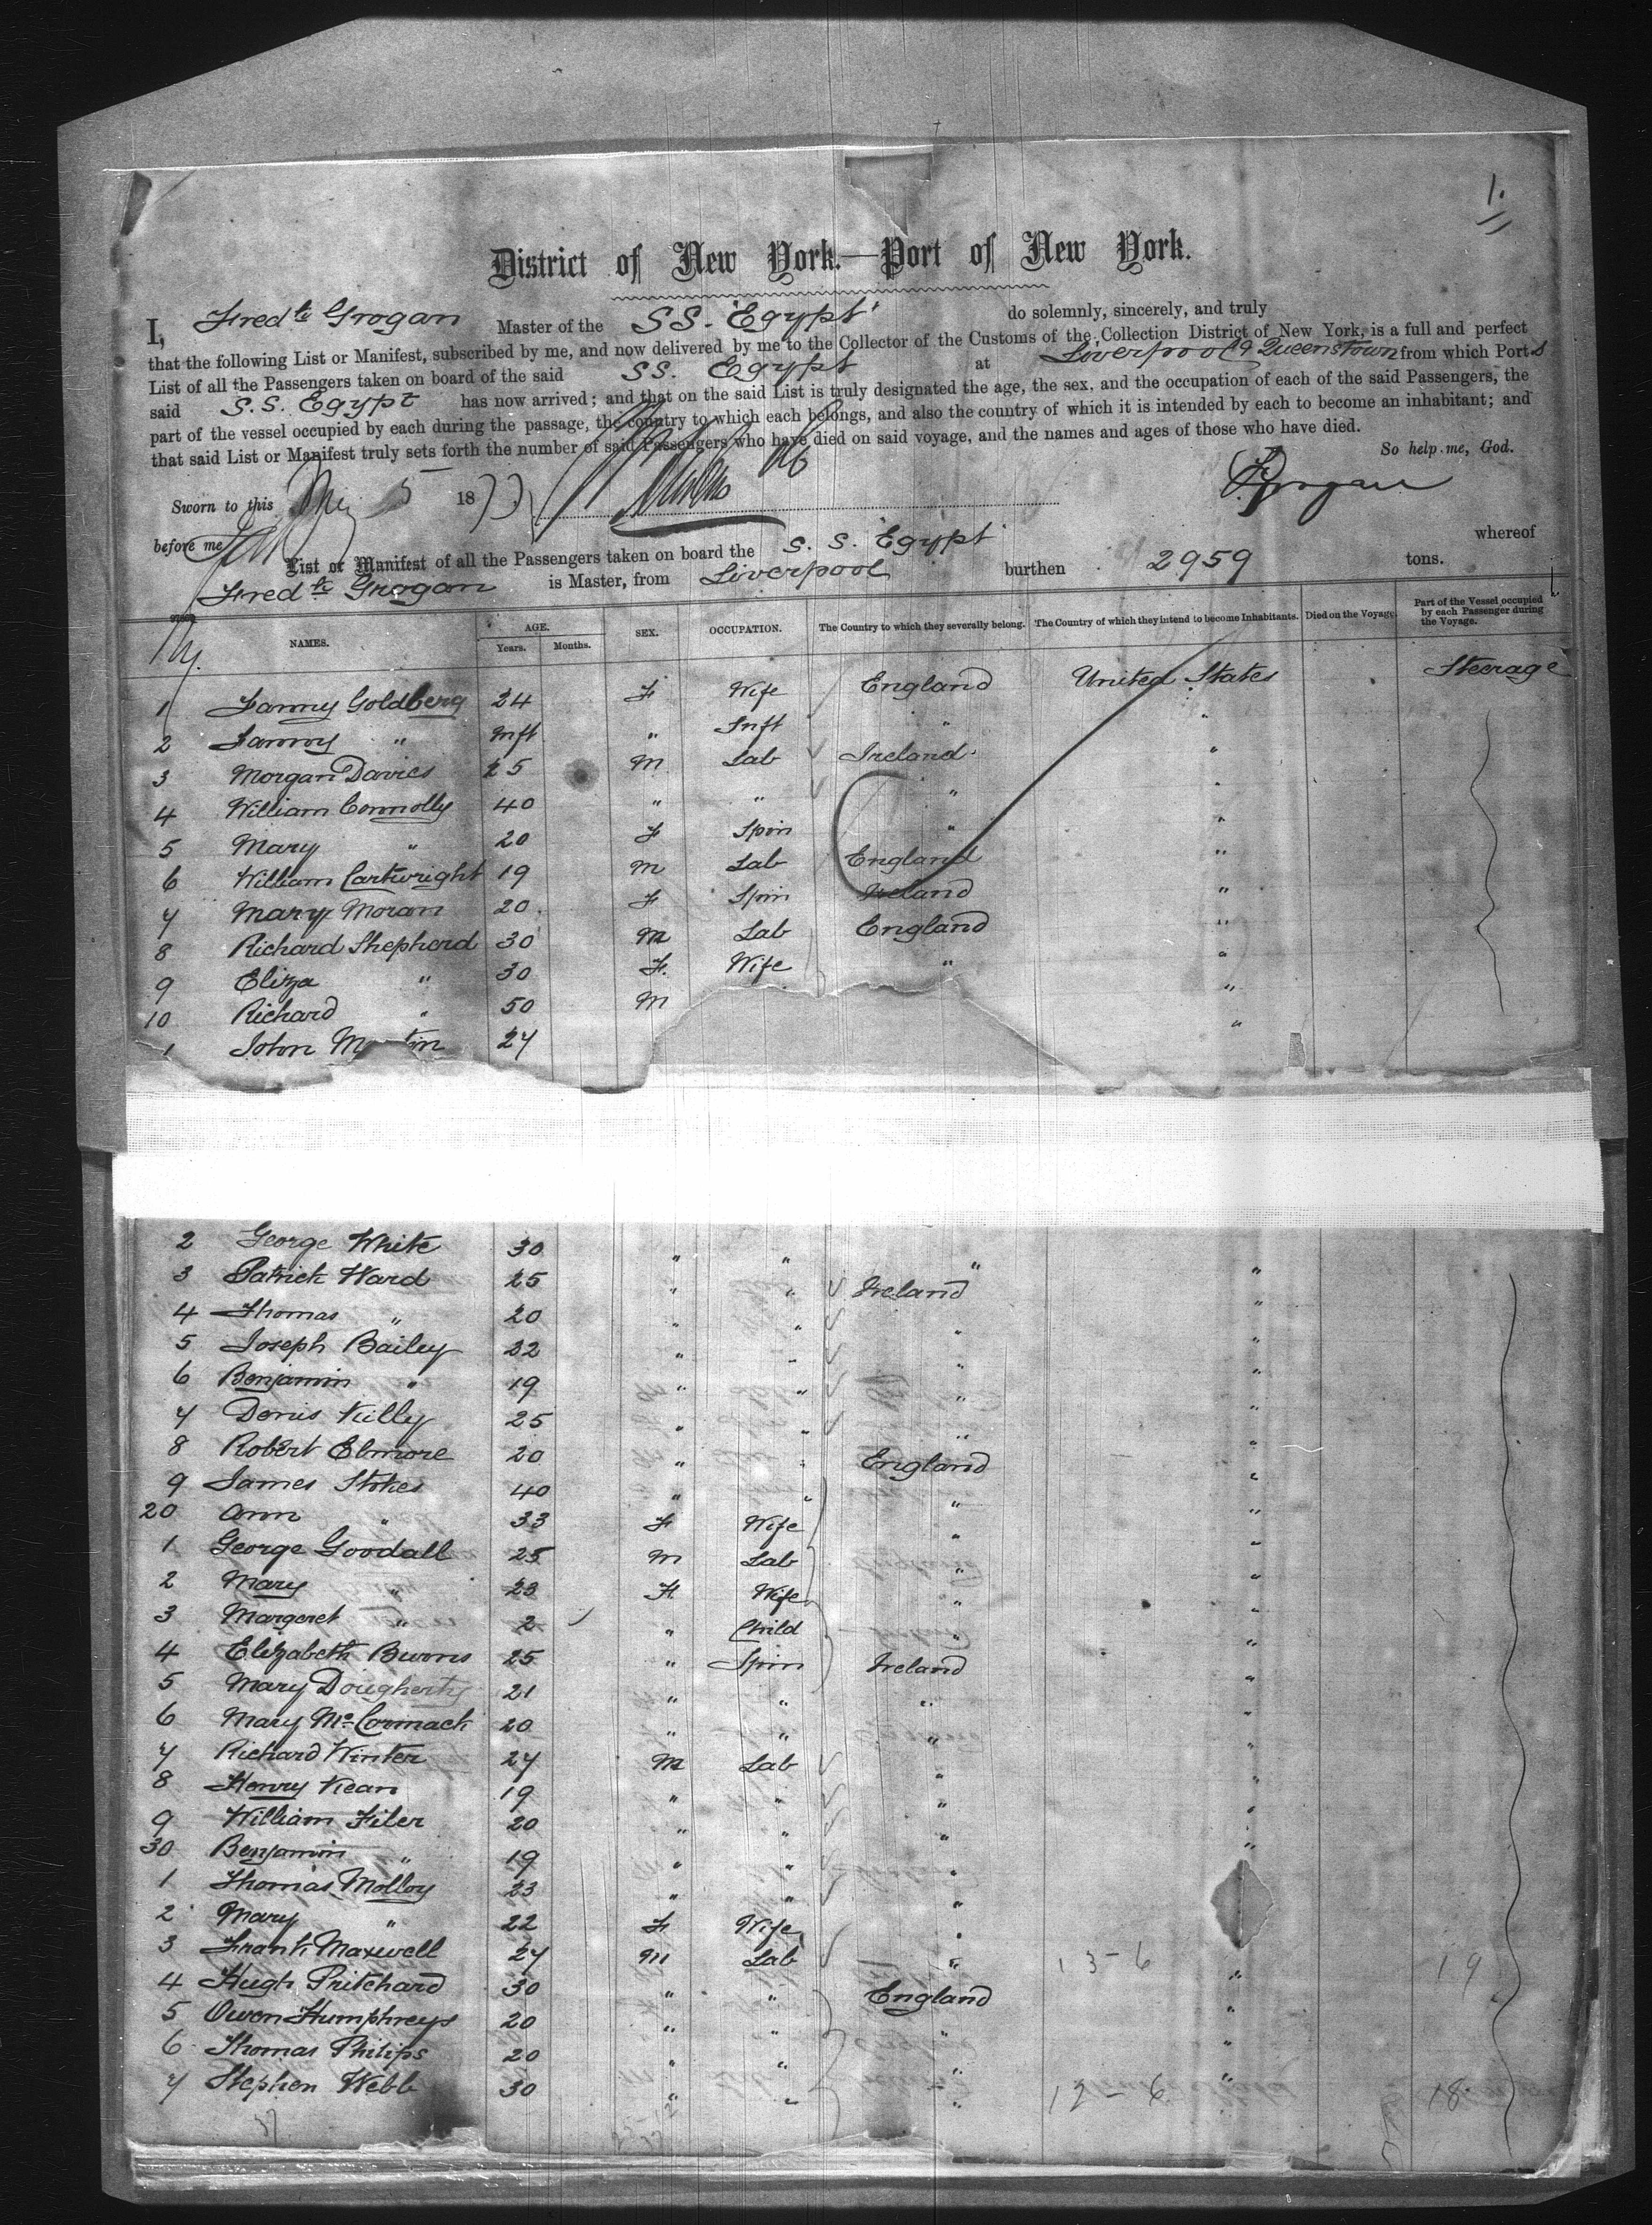 1.
District of New York.—Port of New York.
I, Fred^k Grogan Master of the SS. "Egypt" do solemnly, sincerely, and truly
that the following List or Manifest, subscribed by me, and now delivered by me to the Collector of the Customs of the Collection District of New York, is a full and perfect
List of all the Passengers taken on board of the said SS. Egypt at Liverpool & Queenstown from which Ports
said S.S. Egypt has now arrived; and that on the said List is truly designated the age, the sex, and the occupation of each of the said Passengers, the
part of the vessel occupied by each during the passage, the country to which each belongs, and also the country of which it is intended by each to become an inhabitant; and
that said List or Manifest truly sets forth the number of said Passengers who have died on said voyage, and the names and ages of those who have died.
So help me, God.
Sworn to this May 5 1873 F Grogan
before me
List or Manifest of all the Passengers taken on board the S. S. Egypt whereof
Fred^k Grogan is Master, from Liverpool burthen 2959 tons.
NAMES. AGE. Years. Months. SEX. OCCUPATION. The Country to which they severally belong. The Country of which they intend to become Inhabitants. Died on the Voyage. Part of the Vessel occupied by each Passenger during the Voyage.
1 Fanny Goldberg 24 F Wife England United States Steerage
2 Fanny " Inft " Inft " "
3 Morgan Davies 25 M Lab Ireland "
4 William Connolly 40 " " " "
5 Mary " 20 F Spin " "
6 William Cartwright 19 M Lab England "
7 Mary Moran 20 F Spin Ireland "
8 Richard Shepherd 30 M Lab England "
9 Eliza " 30 F. Wife " "
10 Richard " 50 M "
1 John M tin 27 "
2 George White 30 " " " "
3 Patrick Ward 25 " " Ireland "
4 Thomas " 20 " " " "
5 Joseph Bailey 22 " " " "
6 Benjamin " 19 " " " "
7 Denis Killy 25 " " " "
8 Robert Elmore 20 " " England "
9 James Stokes 40 " " " "
20 Ann " 33 F Wife " "
1 George Goodall 25 M Lab " "
2 Mary " 23 F Wife " "
3 Margeret " 2 " Child " "
4 Elizabeth Burns 25 " Spin Ireland "
5 Mary Dougherty 21 " " " "
6 Mary McCormack 20 " " " "
7 Richard Winter 27 M Lab " "
8 Henry Kean 19 " " " "
9 William Filer 20 " " " "
30 Benjamin " 19 " " "
1 Thomas Molloy 23 " " "
2 Mary " 22 F Wife "
3 Frank Maxwell 27 M Lab " 13-6 " 19
4 Hugh Pritchard 30 " " England "
5 Owen Humphreys 20 " " " "
6 Thomas Philips 20 " " " "
7 Stephen Webb 30 " " " 12-6 18
37